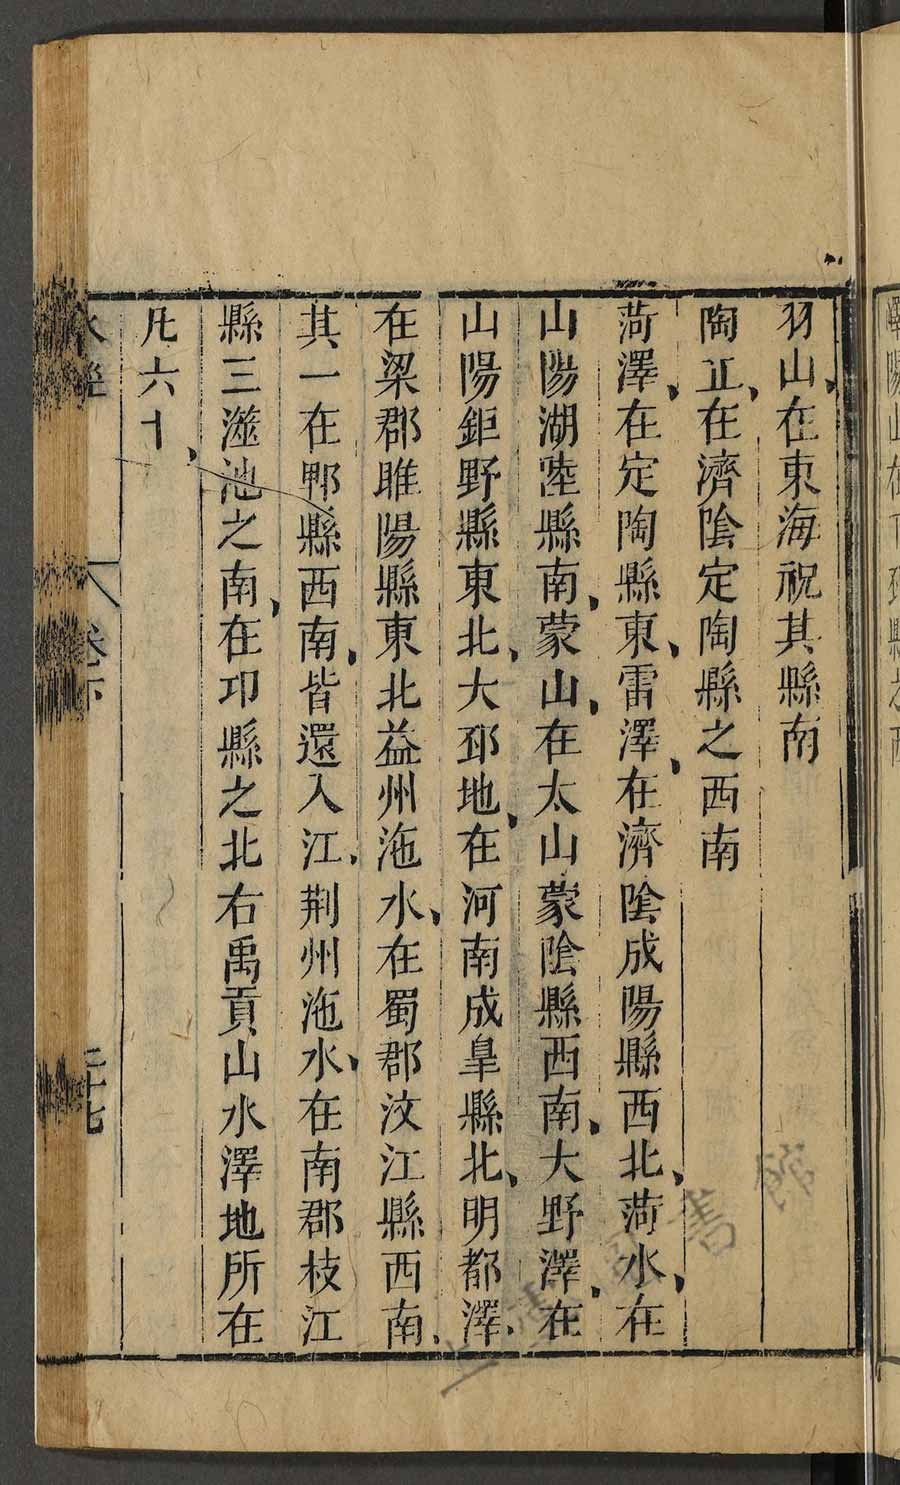 羽山在東海祝其縣南
陶丘在濟陰定陶縣之西南
菏澤在定陶縣東雷澤在濟陰成陽縣西北菏水在
山陽湖陸縣南蒙山在太山蒙陰縣西南大野澤在
山陽鉅野縣東北大邳地在河南成臯縣北明都澤
在梁郡睢陽縣東北益州沲水在蜀郡汶江縣西南
其一在郫縣西南皆還入江荆州沲水在南郡枝江
縣三澨池之南在邔縣之北右禹貢山水澤地所在
凡六十
水經
卷下
二十七